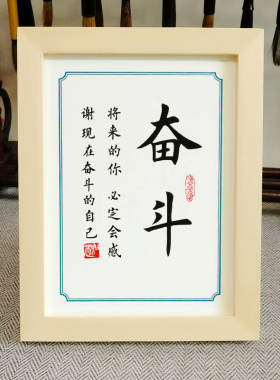 奋斗
将来的你 必定会感
谢现在奋斗的自己